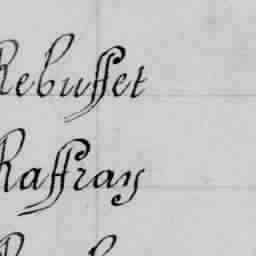 Rebuffet
Raffray